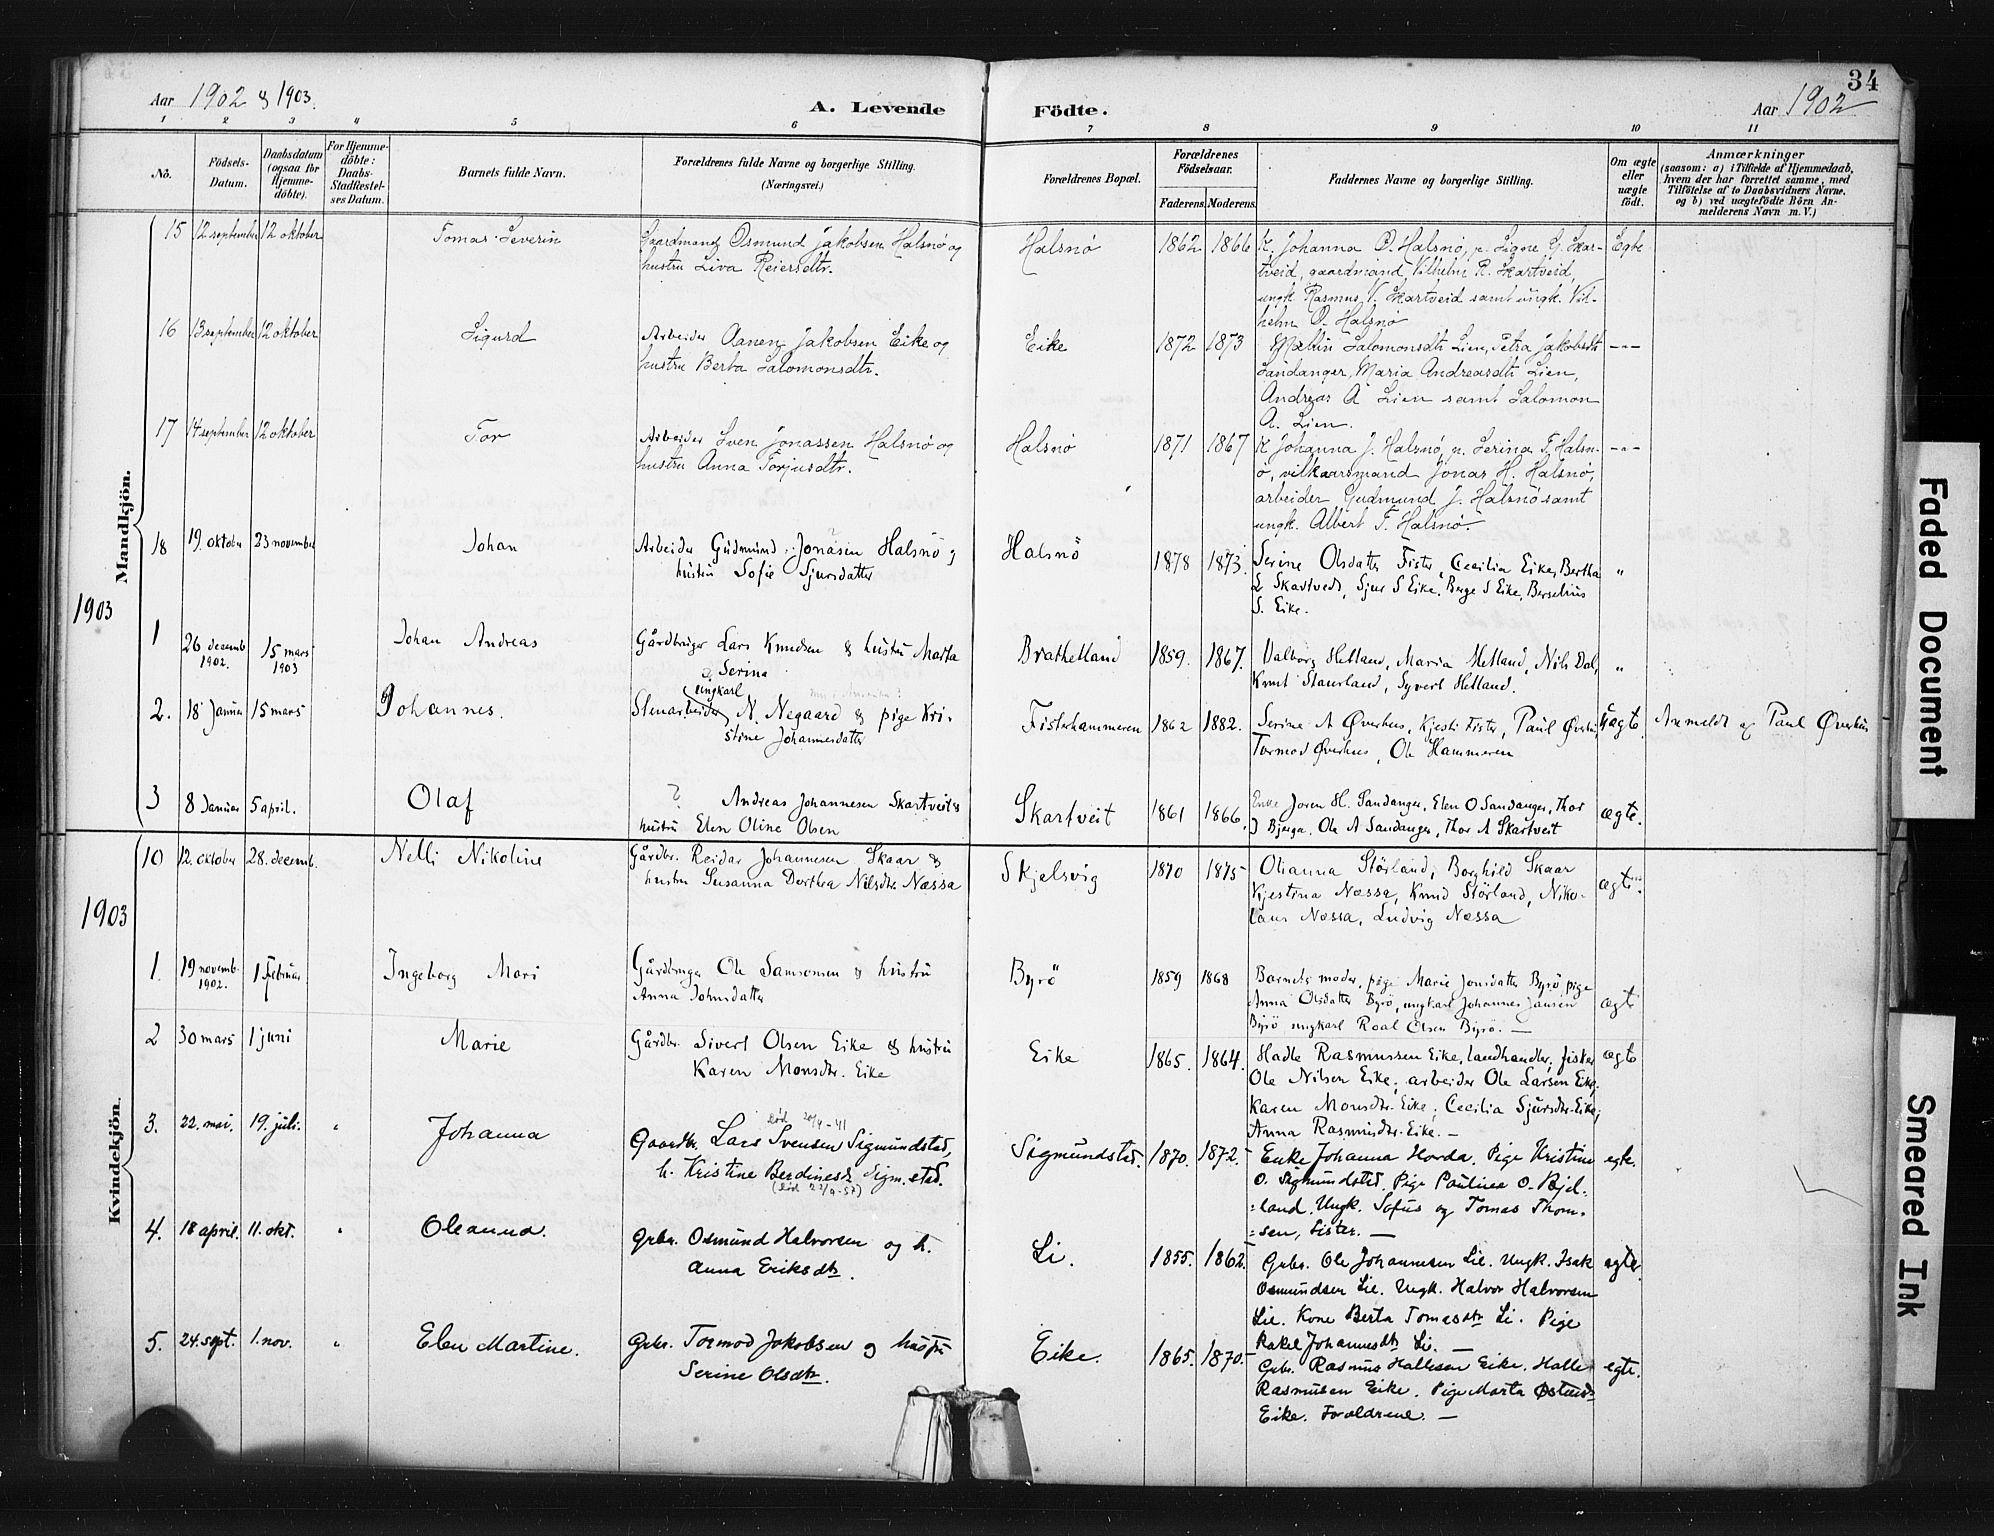 34
Aar 1902 & 1903.
A. Levende
Födte.
Aar 1902
1 2 3 4 5 6 7 8 9 10 11
No.
Födsels-
Datum.
Daabsdatum
(ogsaa for
Hjemme-
döbte).
For Hjemme-
döbte:
Daabs-
Stadfestel-
ses Datum.
Barnets fulde Navn.
Forældrenes fulde Navne og borgerlige Stilling.
(Næringsvei.)
Forældrenes Bopæl.
Forældrenes
Födselsaar.
Faderens. Moderens.
Faddernes Navne og borgerlige Stilling.
Om ægte
eller
uægte
födt.
Anmærkninger
(saasom: a) i Tilfælde af Hjemmedaab,
hvem der har forrettet samme, med
Tilföielse af to Daabsvidners Navne,
og b) ved uægtefödte Börn An-
melderens Navn m. V.)
Mandkjön.
15 12 september 12 oktober Tomas Severin
Gaardmand Osmund Jakobsen Halsnø og
hustru Liva Reiersdtr.
Halsnø 1862 1866
K. Johanna O. Halsnø, p. Signe G. Skar-
tveid, gaardmand Vilhelm R. Skartveid,
ungk. Rasmus V. Skartveid samt ungk. Vil-
helm O. Halsnø
Egte
16 13 september 12 oktober Sigurd
Arbeider Aanen Jakobsen Eike og
hustru Berta Salomonsdtr.
Eike 1872 1873
Malin Salomonsdtr Lien, Petra Jakobsdtr
Sandanger, Maria Andreasdtr Lien,
Andreas A Lien samt Salomon
A. Lien.
-"-
17 14 september 12 oktober Tor
Arbeider Sven Jonassen Halsnø og
hustru Anna Torjusdtr.
Halsnø 1871 1867
K Johanna J. Halsnø, p. Serina T. Halsn-
ø, vilkaarsmand Jonas H. Halsnø,
arbeider Gudmund J. Halsnø samt
ungk. Albert T. Halsnø.
-"-
18 19. oktober 23 november Johan
Arbeider Gudmund Jonasen Halsnø &
hustru Sofie Sjursdatter
Halsnø 1878 1873.
Serine Olsdatter Fister, Cecilia Eike, Bertha
L Skartveds, Sjur S Eike, Berge S Eike, Berselius
S. Eike.
"
1903
1 26 decemb 1902. 15 mars 1903 Johan Andreas
Gårdbruger Lars Knudsen & hustru Marta
Serina
Brathetland 1859. 1867.
Valborg Hetland, Maria Hetland, Nils Dal,
Knut Staurland, Syvert Hetland.
"
2. 18 Januar 15 mars Johannes.
ungkarl
Stenarbeider N. Negaard & pige Kri-
stine Johannesdatter
Fisterhammeren 1862 1882.
Serine A Øverhus, Kjesti Fister, Paul Øverhus,
Tormod Øverhus, Ole Hammeren
Uægte. Anmeldt af Paul Øverhus
3 8 Januar 5 april. Olaf
? Andreas Johannesen Skartveit &
hustru Elen Oline Olsen
Skartveit 1861 1866.
Enke Joren H. Sandanger, Elen O Sandanger, Thor
J Bjerga. Ole A Sandanger, Thor A Skartveit
ægte.
Kvindekjön.
10 12. oktober 28. decemb. Nelli Nikoline
Gårdbr. Reidar Johannesen Skaar &
hustru Susanna Dorthea Nilsdtr Næssa
Skjelsvig 1870 1875
Olianna Størland, Borghild Skaar
Kjestina Næssa, Knud Størland, Niko-
laus Næssa, Ludvig Næssa
ægte.
1903
1. 19 novemb. 1902. 1 Februar Ingeborg Mari
Gårdbruger Ole Samsonsen & hustru
Anna Johnsdatter
Byrö 1859 1868
Barnets moder, pige Marie Jonsdatter Byrø pige
Anna Olsdatter Byrø, ungkarl Johannes Jansen
Byrø ungkarl Roal Olsen Byrø. —
ægt
2 30 mars 1 juni Marie
Gårdbr. Sivert Olsen Eike & hustru
Karen Monsdtr. Eike
Eike 1865. 1864.
Hadle Rasmussen Eike, landhandler, fisker
Ole Nilsen Eike; arbeider Ole Larsen Eike;
Karen Monsdtr. Eike; Cecilia Sjursdtr. Eike;
Anna Rasmusdtr. Eike. —
ægte
3. 22. mai. 19. juli. " Johanna
død 20/4-41
Gaardbr Lars Svensen Sigmundstad,
h. Kristine Berdinesdr Sigm.stad.
Sigmundstad. 1870. 1872.
Enke Johanna Horda. Pige Kristine
O. Sigmundstad. Pige Paulinea O. Bjel-
land. Ungk. Sofus og Tomas Thom-
sen, Fister. —
egte.
4. 18 april. 11. okt. " Oleanna.
Grbr. Osmund Halvorsen og h.
Anna Eriksdtr.
Li. 1855. 1862.
Grbr. Ole Johannesen Lie. Ungk. Isak
Osmundsen Lie. Ungk. Halvor Halvorsen
Lie. Kone Berta Tomasdtr Li. Pige
Rakel Johannesdtr Li. —
egte.
5. 24. sept. 1. nov. " Elen Martine.
Grbr. Tormod Jakobsen og hustru
Serine Olsdtr.
Eike. 1865. 1870.
Grbr. Rasmus Hallesen Eike. Halle
Rasmusen Eike. Pige Marta
Eike. Forældrene. —
egte.
Faded Document
Smeared Ink